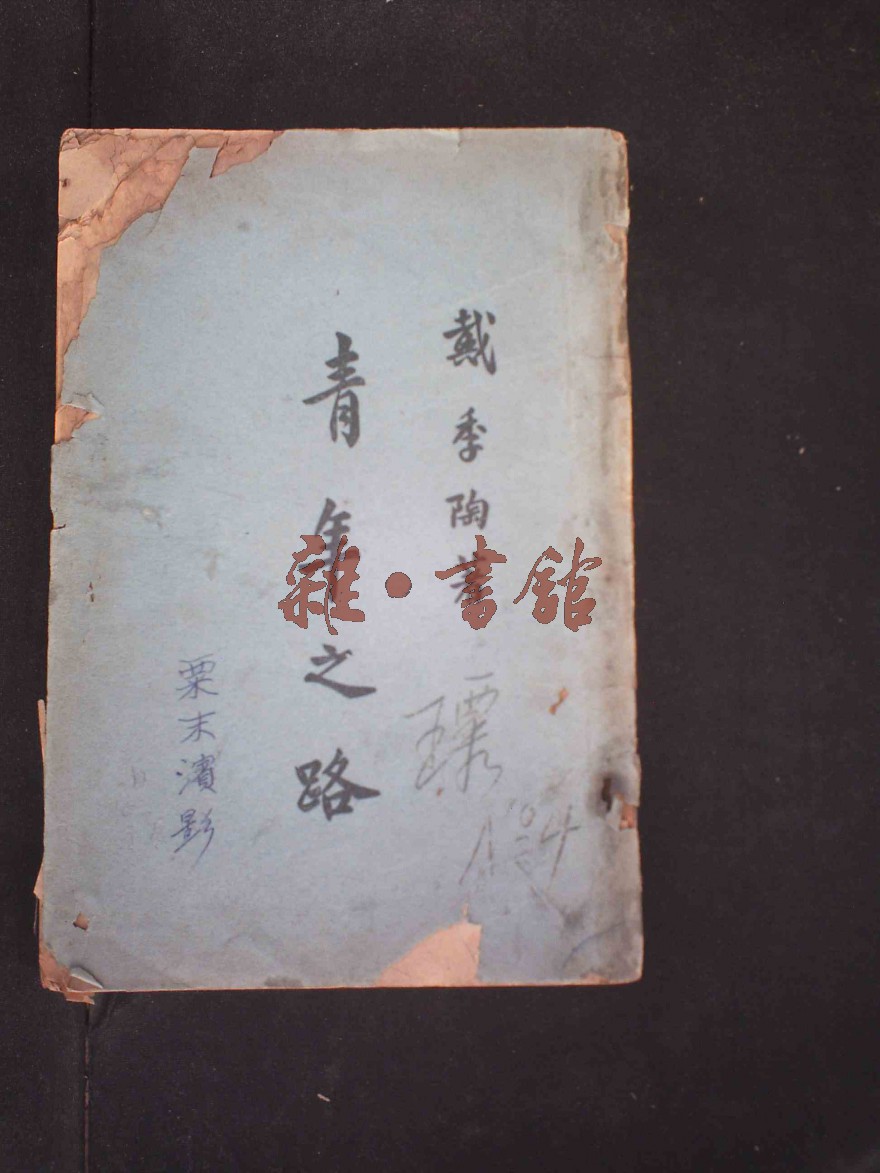 戴季陶著
青年之路
粟末濱影
雜·書館